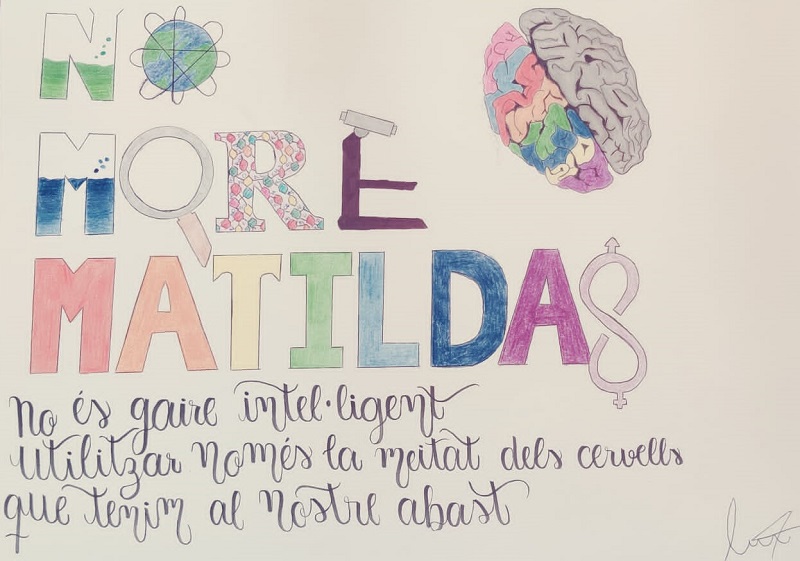 NO
MORE
MATILDAS
No és gaire intel·ligent
utilitzar només la meitat dels cervells
que tenim al nostre abast